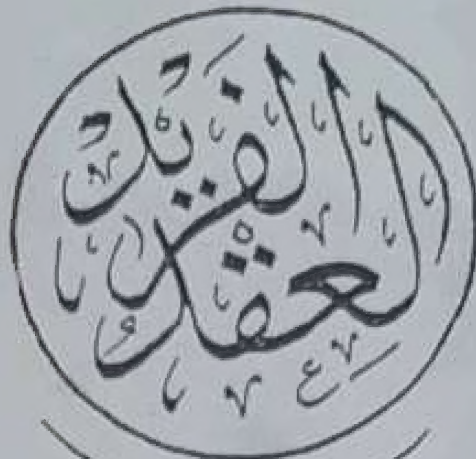 العقد الفريد